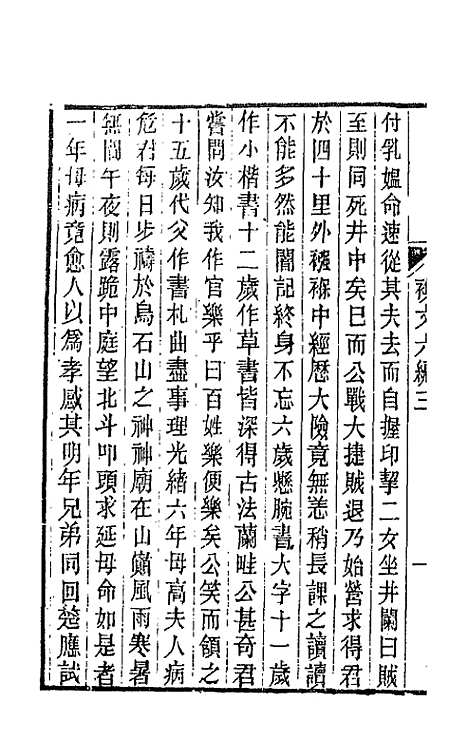 付乳媼命速從其夫去而自握印挈二女坐井闌曰賊
至則同死井中矣已而公戰大捷賊退乃始營求得君
於四十里外襁褓中經歷大險竟無恙稍長課之讀讀
不能多然能闇記終身不忘六歲懸腕書大字十一歲
作小楷書十二歲作草書皆深得古法蘭畦公甚奇君
嘗問汝知我作官樂乎曰百姓樂便樂矣公笑而頷之
十五歲代父作書札曲盡事理光緒六年母高夫人病
危君每日步禱於烏石山之神神廟在山巔風雨寒暑
無間午夜則露跪中庭望北斗叩頭求延母命如是者
一年母病竟愈人以為孝感其明年兄弟同回楚應試
文六編三
一